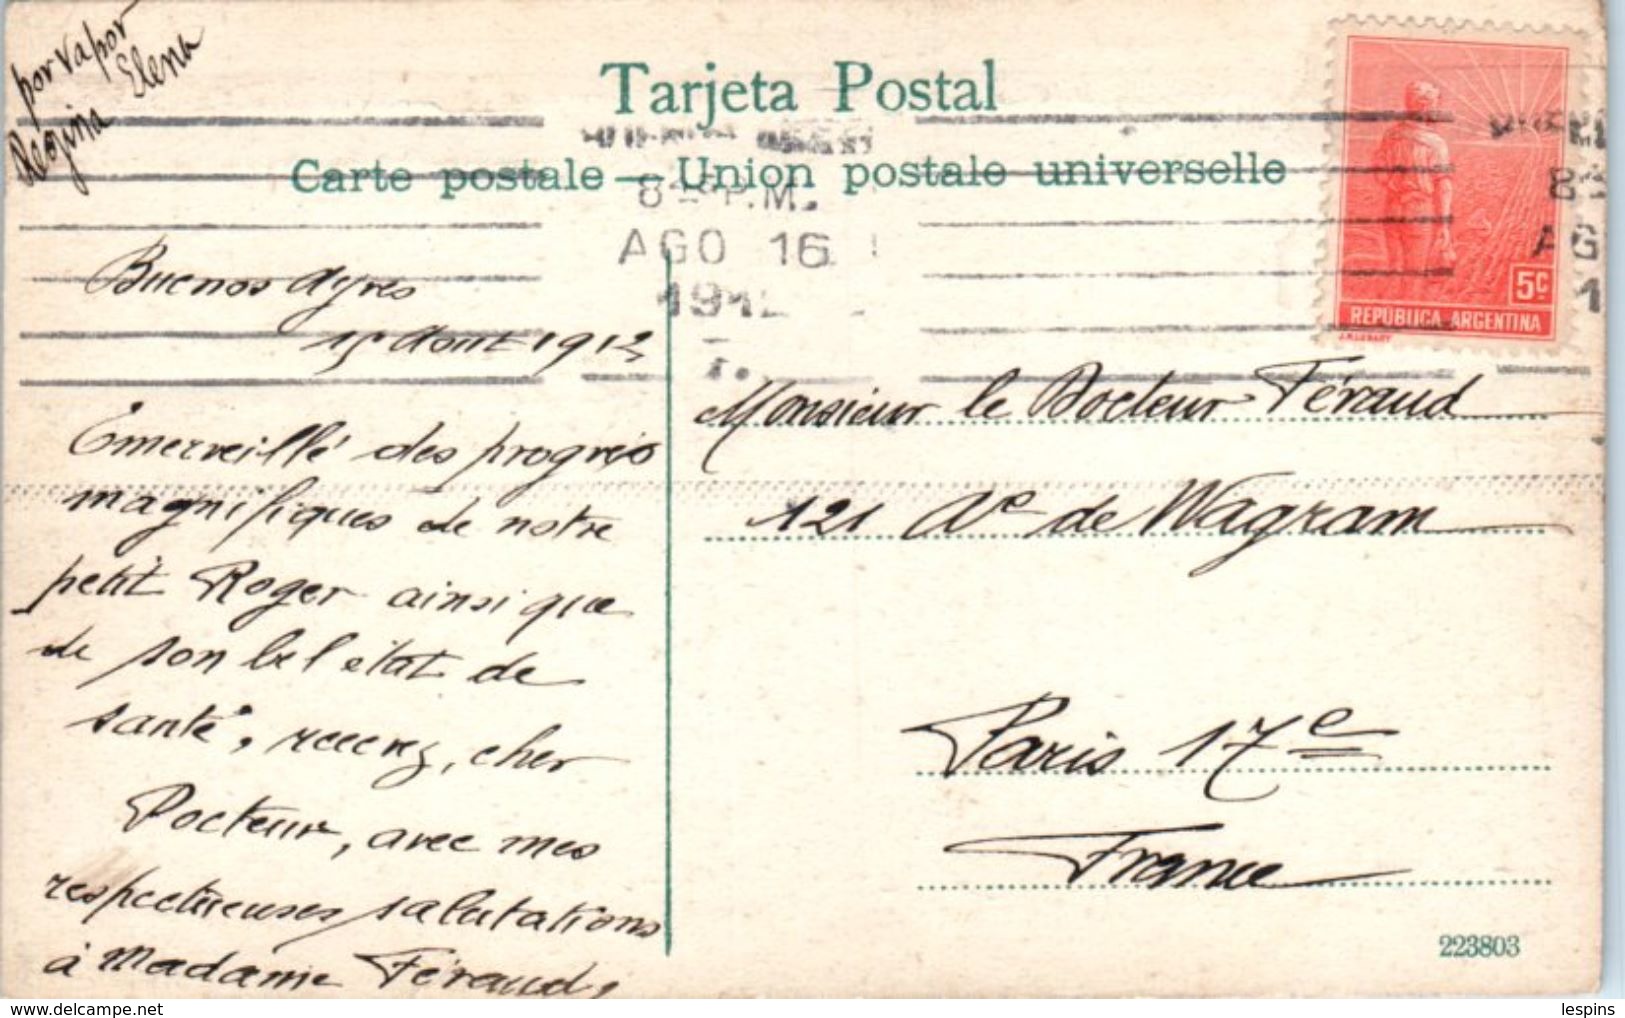 por vapor
Regina Elena
Tarjeta Postal
Carte postale — Union postale universelle
P.M.
AGO 16
191
5c
REPUBLICA ARGENTINA
Buenos Ayres
15 Aout 1912
Émerveillé des progrès
magnifiques de notre
petit Roger ainsi que
de son bel état de
santé, recevez, cher
Docteur, avec mes
respectueuses salutations
à Madame Féraud,
Monsieur le Docteur Féraud
121 Ave de Wagram
Paris 17e
France
223803
lespins